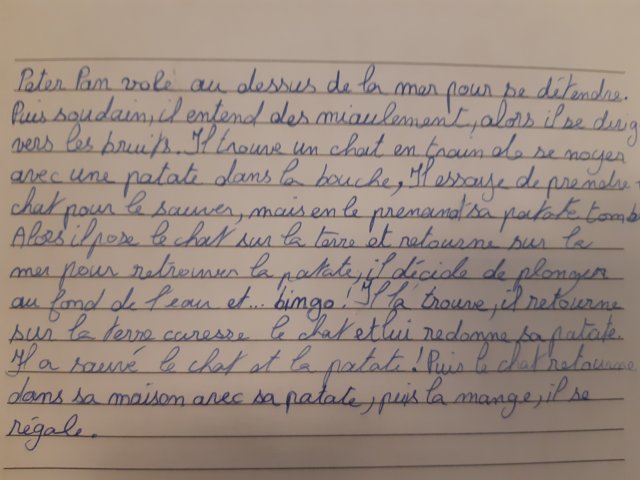 Peter Pan volé au dessus de la mer pour se détendre.
Puis soudain, il entend des miaulement, alors il se dirig
vers les bruits. Il trouve un chat en train de se noyer
avec une patate dans la bouche, Il essaye de prendre
chat pour le sauver, mais en le prenant sa patate tomb
Alors il pose le chat sur la terre et retourne sur la
mer pour retrouver la patate, il décide de plonger
au fond de l'eau et... bingo! Il la trouve, il retourne
sur la terre caresse le chat et lui redonne sa patate.
Il a sauvé le chat et la patate! Puis le chat retourne
dans sa maison avec sa patate, puis la mange, il se
régale.